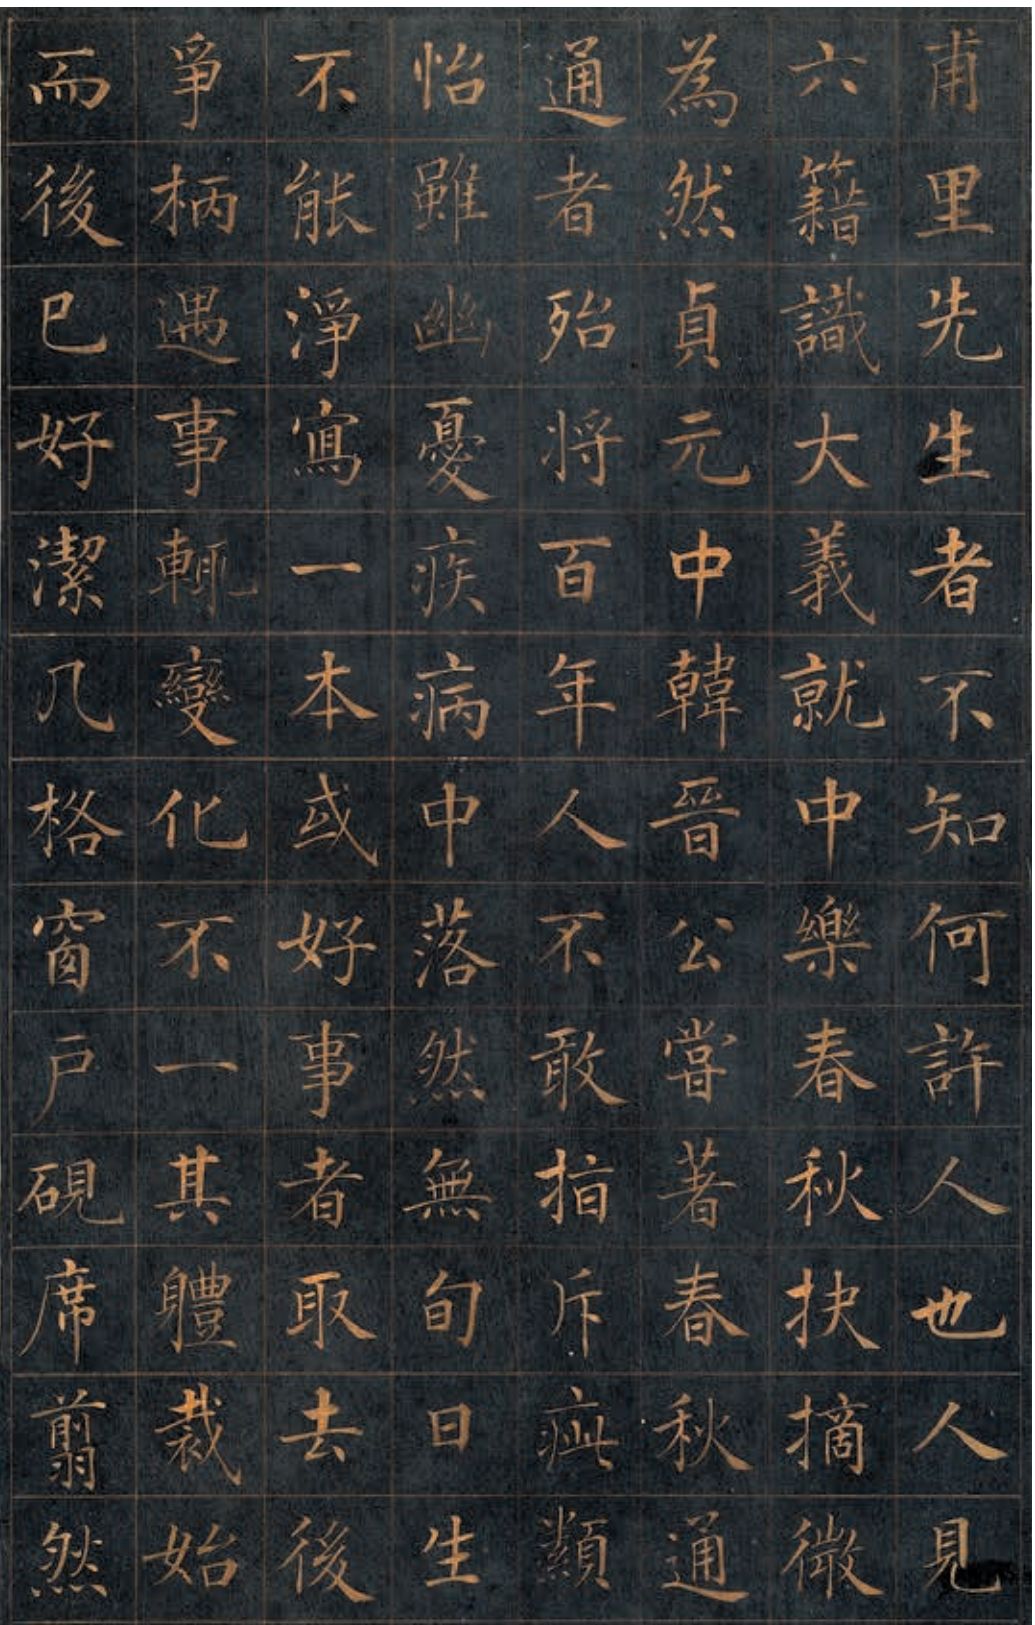 甫里先生者不知何許人也人見
六籍識大義就中樂春秋抉摘微
為然貞元中韓晉公甞著春秋通
通者殆將百年人不敢指斥疵纇
怡雖幽憂疾病中落然無旬日生
不能淨寫一本或好事者取去後
爭柄遇事輒變化不一其體裁始
而後已好潔几格窗戶硯席翦然